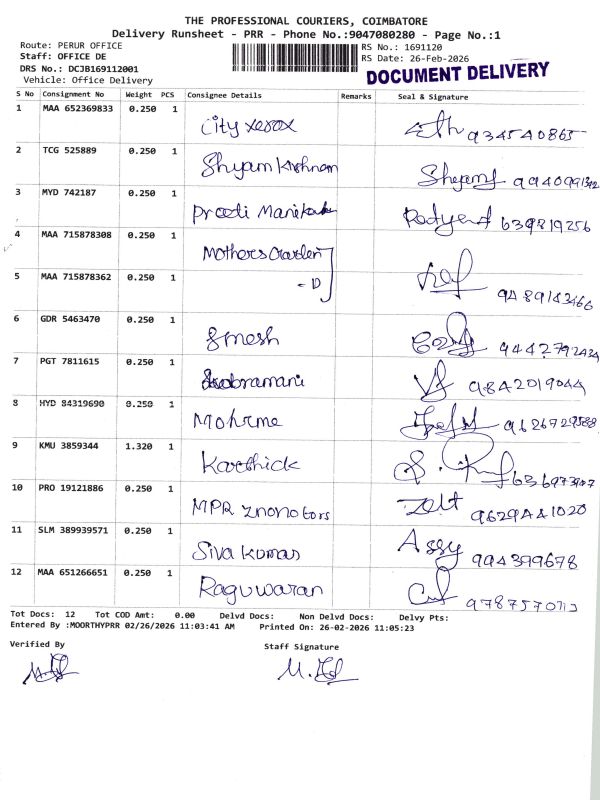 THE PROFESSIONAL COURIERS, COIMBATORE
Delivery Runsheet - PRR - Phone No.:9047080280 - Page No.:1
Route: PERUR OFFICE
RS No.: 1691120
Staff: OFFICE DE
RS Date: 26-Feb-2026
DRS No.: DCJB169112001
DOCUMENT DELIVERY
Vehicle: Office Delivery
S No Consignment No Weight PCS Consignee Details Remarks Seal & Signature
1 MAA 652369833 0.250 1 City xerox
2 TCG 525889 0.250 1 Shyam Krishnan
3 MYD 742187 0.250 1
4 MAA 715878308 0.250 1 Mothers Garden
5 MAA 715878362 0.250 1 - D 9489143466
6 GDR 5463470 0.250 1 9442792434
7 PGT 7811615 0.250 1 9842019044
8 HYD 84319690 0.250 1 9626729588
9 KMU 3859344 1.320 1 Karthick
10 PRO 19121886 0.250 1 MPR 9629441020
11 SLM 389939571 0.250 1 Siva Kumar Assy 994399678
12 MAA 651266651 0.250 1 Raguwaran
Tot Docs: 12 Tot COD Amt: 0.00 Delvd Docs: Non Delvd Docs: Delvy Pts:
Entered By :MOORTHYPRR 02/26/2026 11:03:41 AM Printed On: 26-02-2026 11:05:23
Verified By
Staff Signature